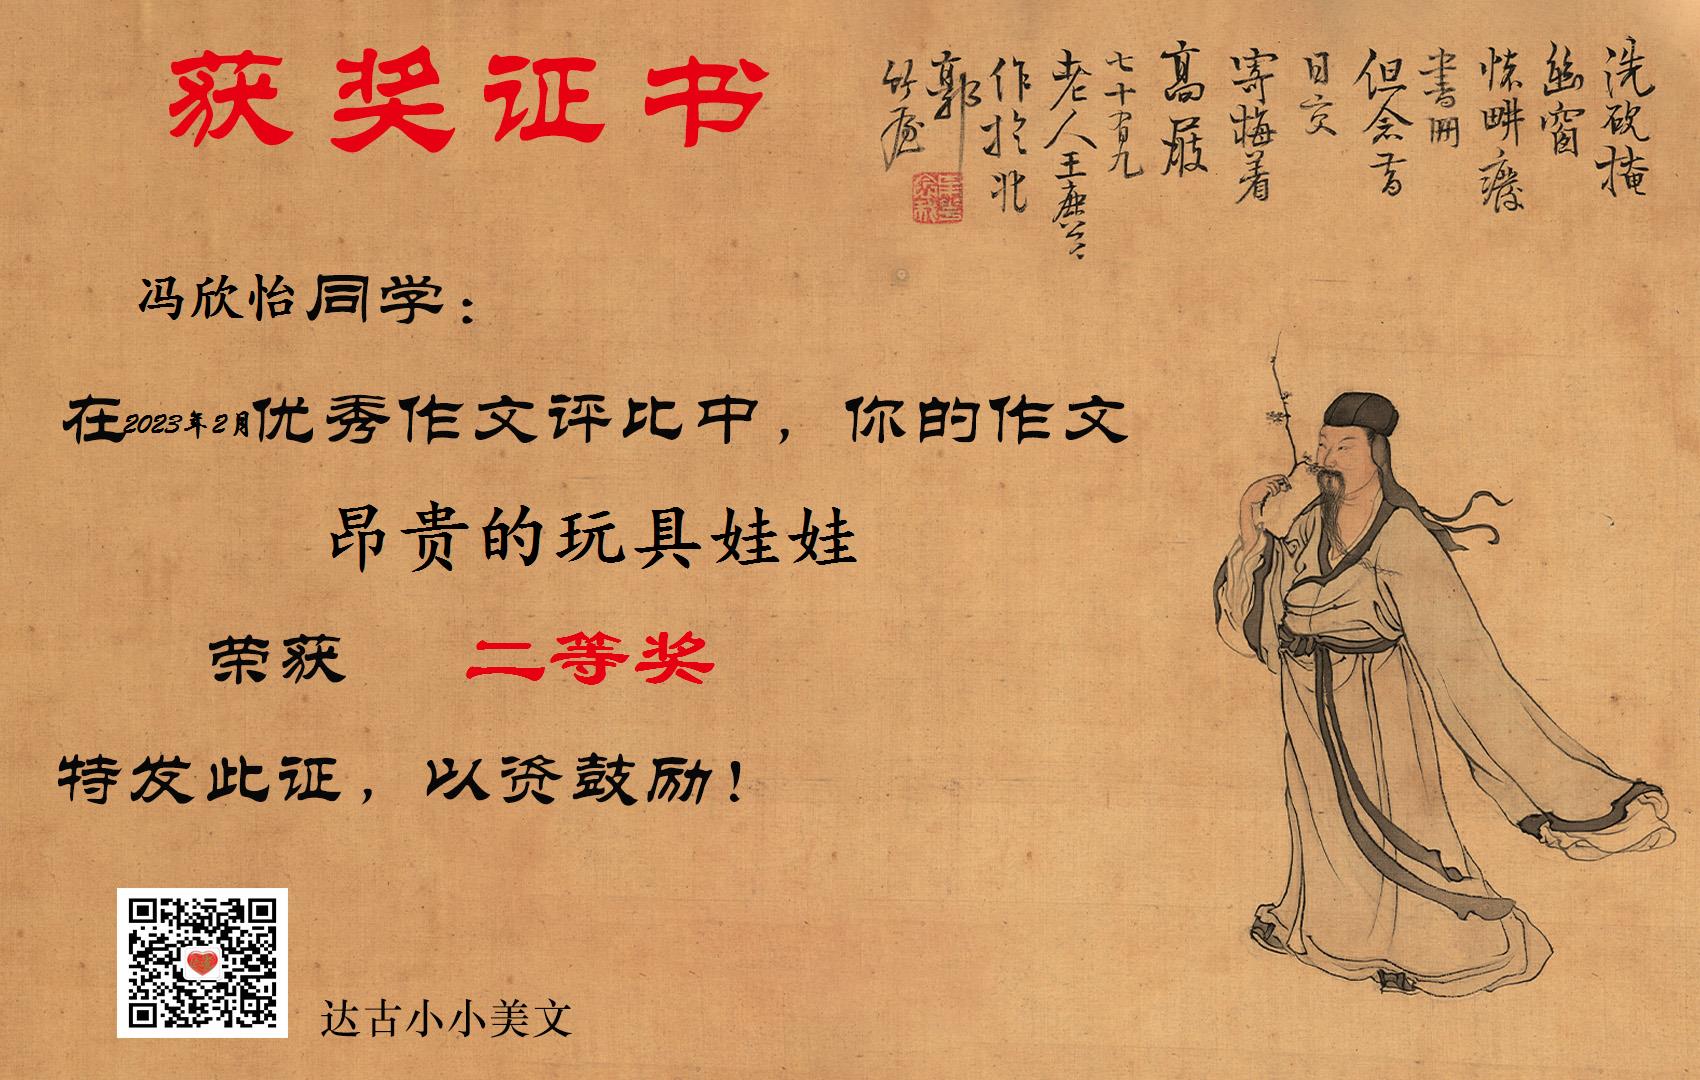 获奖证书
冯欣怡同学：
在2023年2月优秀作文评比中，你的作文
昂贵的玩具娃娃
荣获 二等奖
特发此证，以资鼓励！
达古小小美文
洗砚掩
幽窗
怀畊癈
書冊
但念昔
日交
寄梅着
高屐
七十有九
老人王
作於北
郭
竹屋